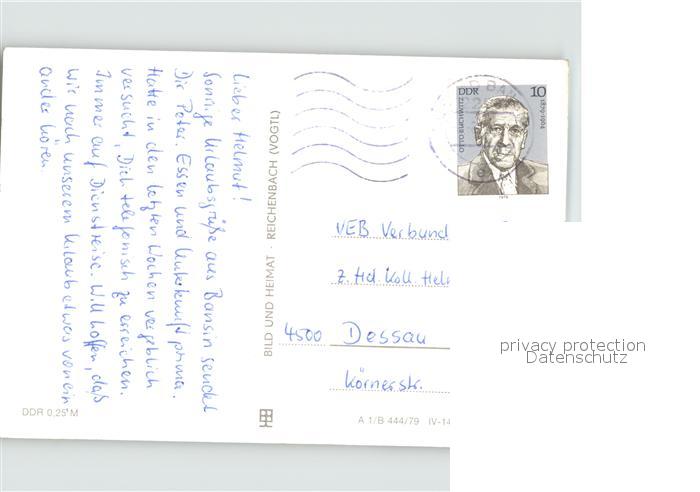 Lieber Helmut!
Sonnige Urlaubsgrüße aus Bansin sendet
Dir Peter. Essen und Unterkunft prima.
Hatte in den letzten Wochen vergeblich
versucht, Dich telefonisch zu erreichen.
Immer auf Dienstreise. Will hoffen, daß
wir nach unserem Urlaub etwas vonein
ander hören.
DDR 0,25 M
BILD UND HEIMAT · REICHENBACH (VOGTL)
DDR 10
OTTO BUCHWITZ 1879-1964
1979
VEB Verbund
z. Hd. Koll. Hel
4500 Dessau
Körnerstr.
A 1/B 444/79 IV-14
privacy protection
Datenschutz